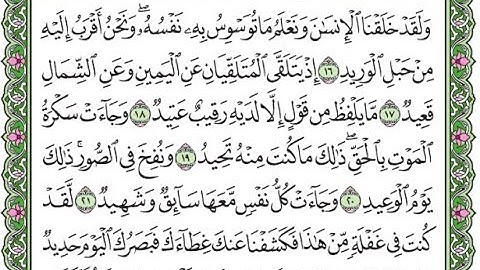 وَلَقَدْ خَلَقْنَا الْإِنسَانَ وَنَعْلَمُ مَا تُوَسْوِسُ بِهِ نَفْسُهُ ۖ وَنَحْنُ أَقْرَبُ إِلَيْهِ
مِنْ حَبْلِ الْوَرِيدِ ١٦ إِذْ يَتَلَقَّى الْمُتَلَقِّيَانِ عَنِ الْيَمِينِ وَعَنِ الشِّمَالِ
قَعِيدٌ ١٧ مَّا يَلْفِظُ مِن قَوْلٍ إِلَّا لَدَيْهِ رَقِيبٌ عَتِيدٌ ١٨ وَجَاءَتْ سَكْرَةُ
الْمَوْتِ بِالْحَقِّ ۖ ذَٰلِكَ مَا كُنتَ مِنْهُ تَحِيدُ ١٩ وَنُفِخَ فِي الصُّورِ ۚ ذَٰلِكَ
يَوْمُ الْوَعِيدِ ٢٠ وَجَاءَتْ كُلُّ نَفْسٍ مَّعَهَا سَائِقٌ وَشَهِيدٌ ٢١ لَّقَدْ
كُنتَ فِي غَفْلَةٍ مِّنْ هَٰذَا فَكَشَفْنَا عَنكَ غِطَاءَكَ فَبَصَرُكَ الْيَوْمَ حَدِيدٌ